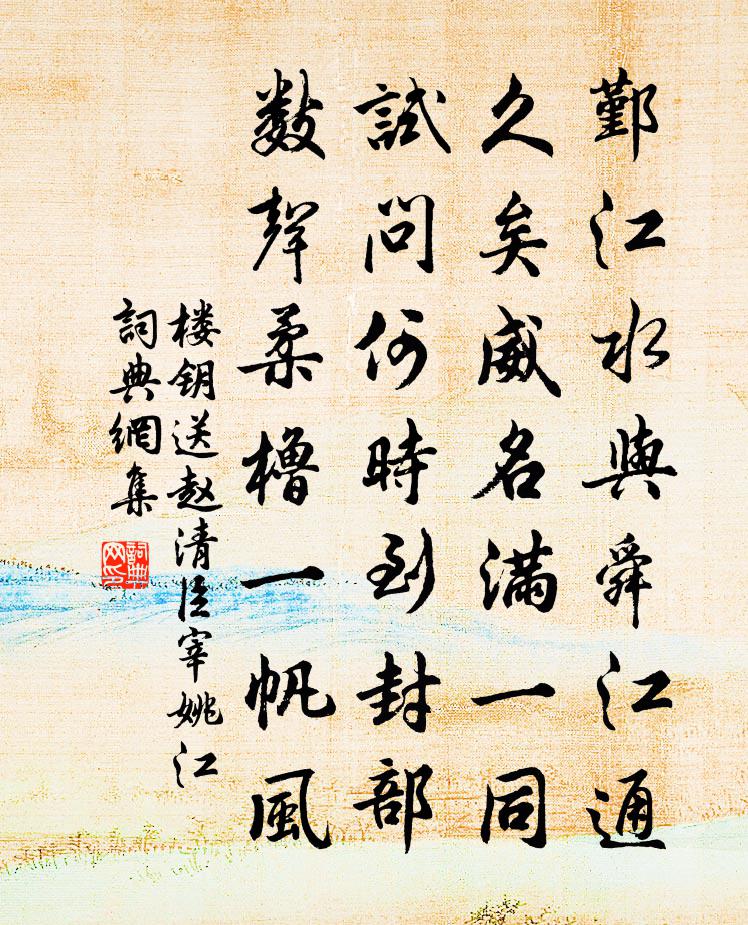 鄞江水與舜江通
久矣威名滿一同
試問何時到封部
數聲柔櫓一帆風
楼钥送赵清臣宰姚江
詞典網集
詞典
网印